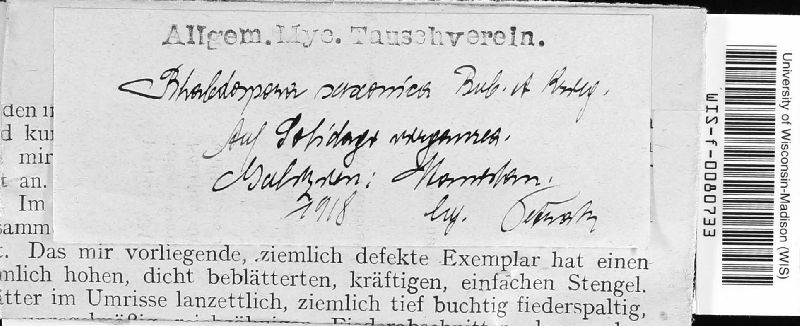 Allgem. Myc. Tauschverein.
Rhabdospora saxonica Bub. et Krieg.
Auf Solidago virgaurea.
1918 leg. Petrak
den
d kur
mir
t an.
Im
samm
t. Das mir vorliegende, ziemlich defekte Exemplar hat einen
mlich hohen, dicht beblätterten, kräftigen, einfachen Stengel.
ätter im Umrisse lanzettlich, ziemlich tief buchtig fiederspaltig,
University of Wisconsin-Madison (WIS)
WIS-f-0080733